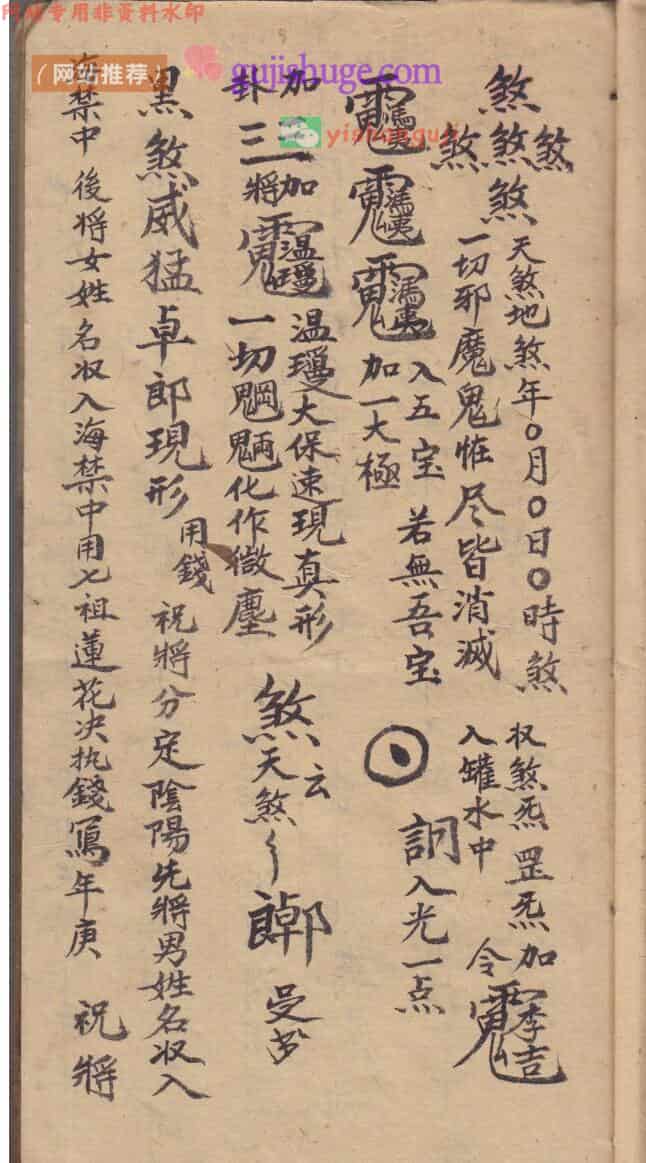 网站专用非资料水印
（网站推荐）
gujishuge.com
yishanguji
煞
煞煞煞
煞
天煞地煞年〇月〇日〇時煞
一切邪魔鬼怪尽皆消滅
収煞炁罡炁加
入罐水中
令
李吉
馮夷
馮夷
馮夷
入五宝
加一大極
若無吾宝
入光一点
加三加
卦三將
温瓊
温瓊大保速現真形
一切魍魎化作微塵
煞云
天煞
黑煞威猛卓郎現形
用錢
祝將分定陰陽先將男姓名収入
海禁中後将女姓名収入海禁中用七祖蓮花决执錢寫年庚
祝將